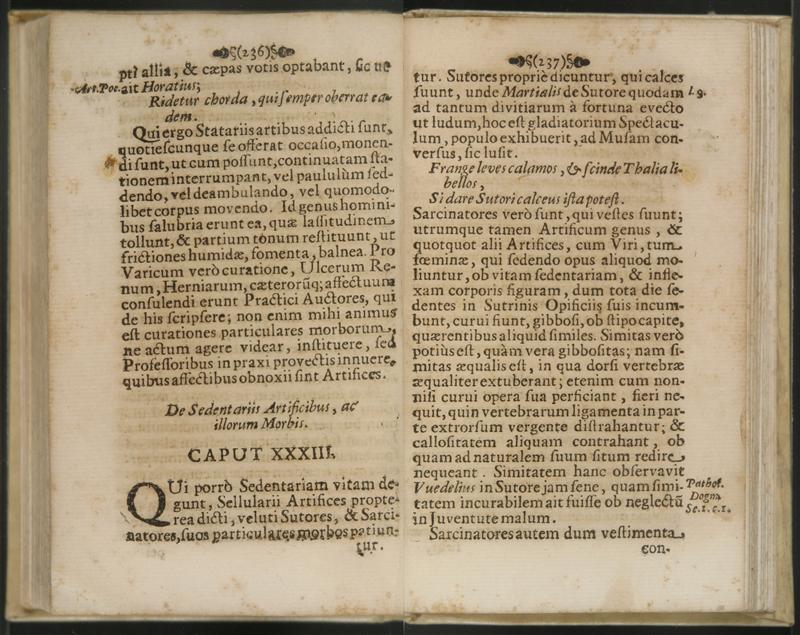 (236)
pti allia, & cæpas votis optabant, sic ut
Art. Poe. ait Horatius;
Ridetur chorda, qui semper oberrat ea-
dem.
Qui ergo Statariis artibus addicti sunt,
quotiescunque se offerat occasio, monen-
di sunt, ut cum possunt, continuatam sta-
tionem interrumpant, vel paululùm sed-
dendo, vel deambulando, vel quomodo-
libet corpus movendo. Id genus homini-
bus salubria erunt ea, quæ lassitudinem
tollunt, & partium tonum restituunt, ut
frictiones humidæ, fomenta, balnea. Pro
Varicum verò curatione, Ulcerum Re-
num, Herniarum, cæterorūq; affectuum
consulendi erunt Practici Auctores, qui
de his scripsere; non enim mihi animus
est curationes particulares morborum,
ne actum agere videar, instituere, sed
Professoribus in praxi provectis innuere,
quibus affectibus obnoxii sint Artifices.
De Sedentariis Artificibus, ac
illorum Morbis.
CAPUT XXXIII.
QUi porrò Sedentariam vitam de-
gunt, Sellularii Artifices propte-
rea dicti, veluti Sutores, & Sarci-
natores, suos particulares morbos patiun-
tur.
(237)
tur. Sutores propriè dicuntur, qui calces
suunt, unde Martialis de Sutore quodam l. 9.
ad tantum divitiarum à fortuna evecto
ut ludum, hoc est gladiatorium Spectacu-
lum, populo exhibuerit, ad Musam con-
versus, sic lusit.
Frange leves calamos, & scinde Thalia li-
bellos,
Si dare Sutori calceus ista potest.
Sarcinatores verò sunt, qui vestes suunt;
utrumque tamen Artificum genus, &
quotquot alii Artifices, cum Viri, tum
fœminæ, qui sedendo opus aliquod mo-
liuntur, ob vitam sedentariam, & infle-
xam corporis figuram, dum tota die se-
dentes in Sutrinis Opificiis suis incum-
bunt, curui fiunt, gibbosi, ob stipo capite,
quærentibus aliquid similes. Simitas verò
potiùs est, quàm vera gibbositas; nam si-
mitas æqualis est, in qua dorsi vertebræ
æqualiter extuberant; etenim cum non-
nisi curui opera sua perficiant, fieri ne-
quit, quin vertebrarum ligamenta in par-
te extrorsum vergente distrahantur; &
callositatem aliquam contrahant, ob
quam ad naturalem suum situm redire
nequeant. Simitatem hanc observavit
Vuedelius in Sutore jam sene, quam simi- Pathol.
tatem incurabilem ait fuisse ob neglectū Dogm.
in Juventute malum. Se. 1. c. 1.
Sarcinatores autem dum vestimenta
con-